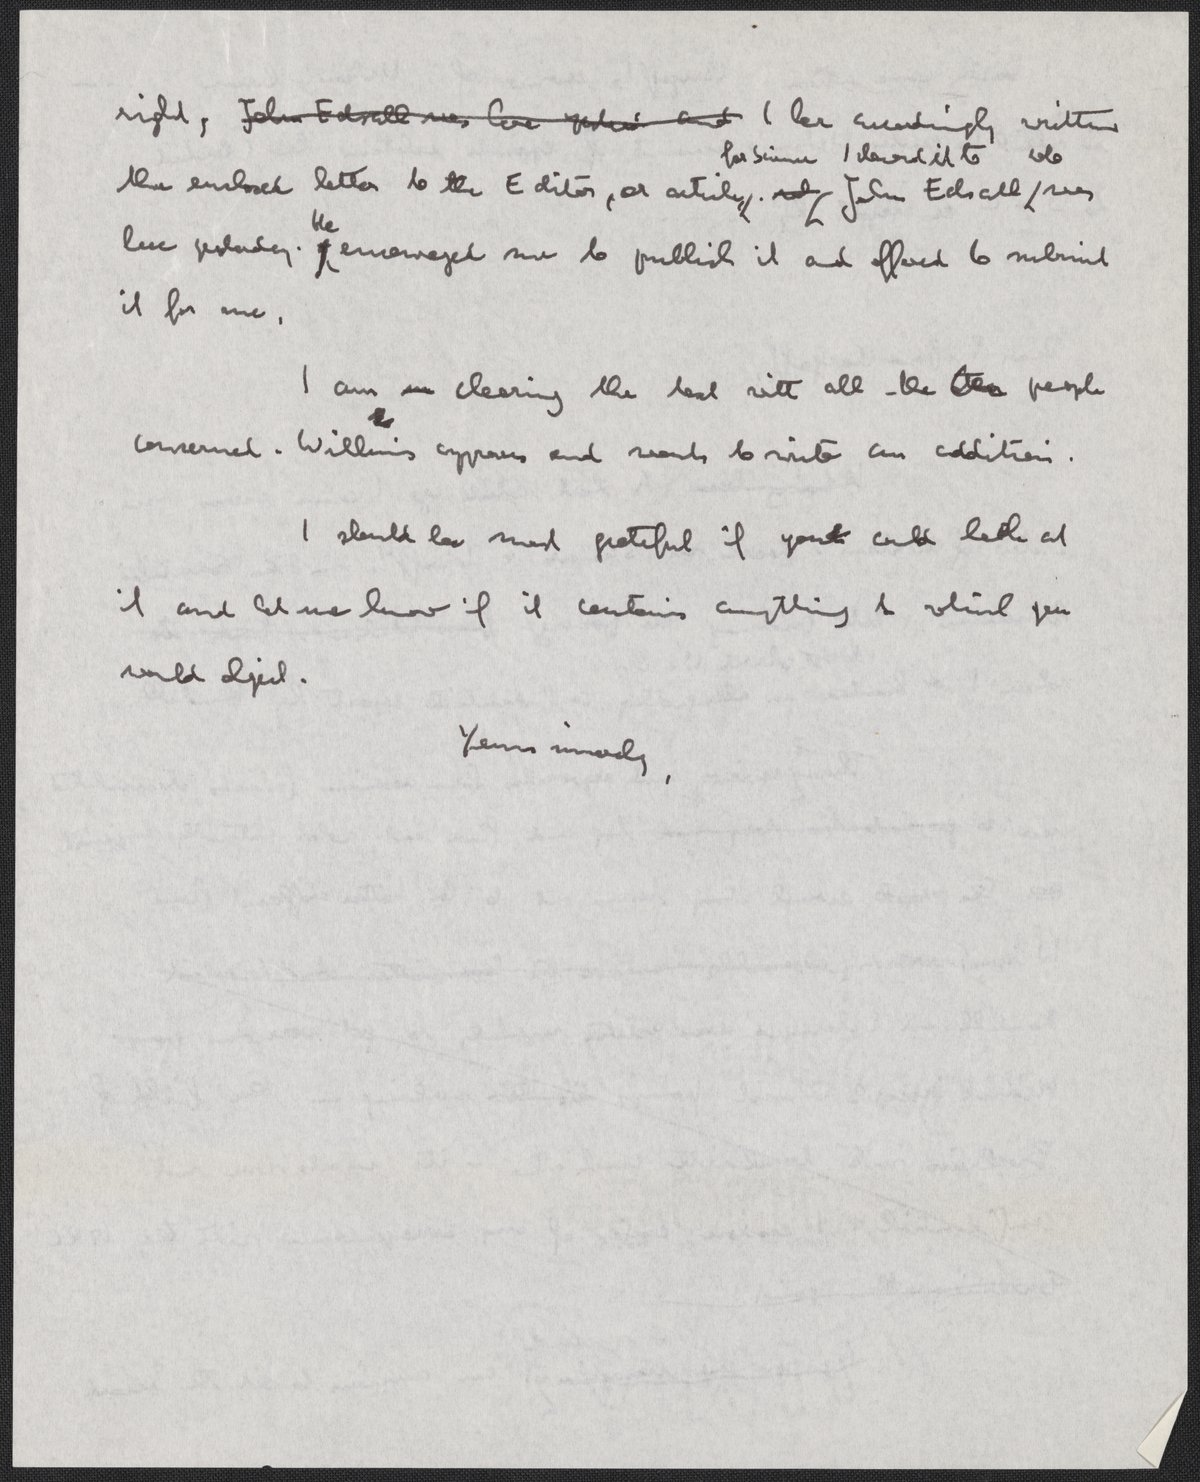 right, John Edsall was here yesterday and I have accordingly written
for Science I showed it to who
the enclosed letter to the Editor, or article, John Edsall was
He
here yesterday. encouraged me to publish it and offered to submit
it for me.
I am clearing the text with all the people
concerned. Wilkins approves and wants to write an addition.
I should be most grateful if you could look at
it and let me know if it contains anything to which you
would object.
Yours sincerely,